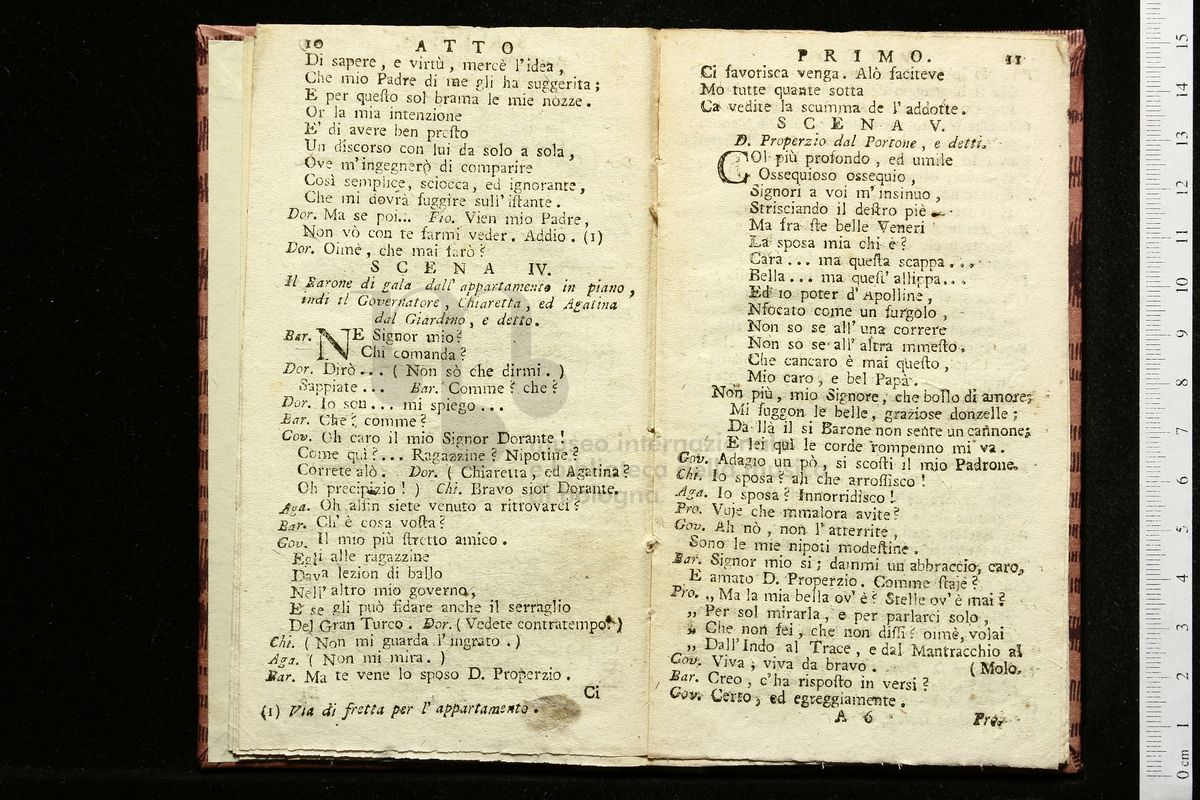 10 ATTO
Di sapere, e virtù, mercè l'idea,
Che mio Padre di me gli ha suggerita;
E per questo sol brama le mie nozze.
Or la mia intenzione
E' di avere ben presto
Un discorso con lui da solo a sola,
Ove m'ingegnerò di comparire
Così semplice, sciocca, ed ignorante,
Che mi dovrà fuggire sull'istante.
Dor. Ma se poi... Fio. Vien mio Padre,
Non vò con te farmi veder. Addio. (1)
Dor. Oimè, che mai farò?
SCENA IV.
Il Barone di gala dall'appartamento in piano,
indi il Governatore, Chiaretta, ed Agatina
dal Giardino, e detto.
Bar. NE Signor mio?
Chi comanda?
Dor. Dirò... (Non sò che dirmi.)
Sappiate... Bar. Comme? che?
Dor. Io son... mi spiego...
Bar. Che? comme?
Gov. Oh caro il mio Signor Dorante!
Come quì?... Ragazzine? Nipotine?
Correte alò. Dor. (Chiaretta, ed Agatina?
Oh precipizio!) Chi. Bravo sior Dorante.
Aga. Oh alfin siete venuto a ritrovarci?
Bar. Ch'è cosa vosta?
Gov. Il mio più stretto amico.
Egli alle ragazzine
Dava lezion di ballo
Nell'altro mio governo,
E se gli può fidare anche il serraglio
Del Gran Turco. Dor. (Vedete contratempo!)
Chi. (Non mi guarda l'ingrato.)
Aga. (Non mi mira.)
Bar. Ma te vene lo sposo D. Properzio.
Ci
(1) Via di fretta per l'appartamento.
PRIMO. 11
Ci favorisca venga. Alò faciteve
Mo tutte quante sotta
Ca vedite la scumma de l'addotte.
SCENA V.
D. Properzio dal Portone, e detti.
COl più profondo, ed umile
Ossequioso ossequio,
Signori a voi m'insinuo,
Strisciando il destro piè
Ma fra ste belle Veneri
La sposa mia chi è?
Cara... ma questa scappa...
Bella... ma quest'allippa...
Ed io poter d'Apolline,
Nfocato come un furgolo,
Non so se all'una correre
Non so se all'altra mmesto,
Che cancaro è mai questo,
Mio caro, e bel Papà.
Non più, mio Signore, che bollo di amore;
Mi fuggon le belle, graziose donzelle;
Da llà il si Barone non sente un cannone;
E lei quì le corde rompenno mi va.
Gov. Adagio un pò, si scosti il mio Padrone.
Chi. Io sposa? ah che arrossisco!
Aga. Io sposa? Innorridisco!
Pro. Vuje che mmalora avite?
Gov. Ah nò, non l'atterrite,
Sono le mie nipoti modestine.
Bar. Signor mio si; dammi un abbraccio, caro,
E amato D. Properzio. Comme staje?
Pro. „ Ma la mia bella ov'è? Stelle ov'è mai?
„ Per sol mirarla, e per parlarci solo,
„ Che non fei, che non dissi? oimè, volai
„ Dall'Indo al Trace, e dal Mantracchio al
Gov. Viva, viva da bravo. (Molo.
Bar. Creo, c'ha risposto in versi?
Gov. Certo, ed egregiamente.
A 6 Pro.
museo internazionale
e biblioteca della musica
di bologna
0 cm 1 2 3 4 5 6 7 8 9 10 11 12 13 14 15